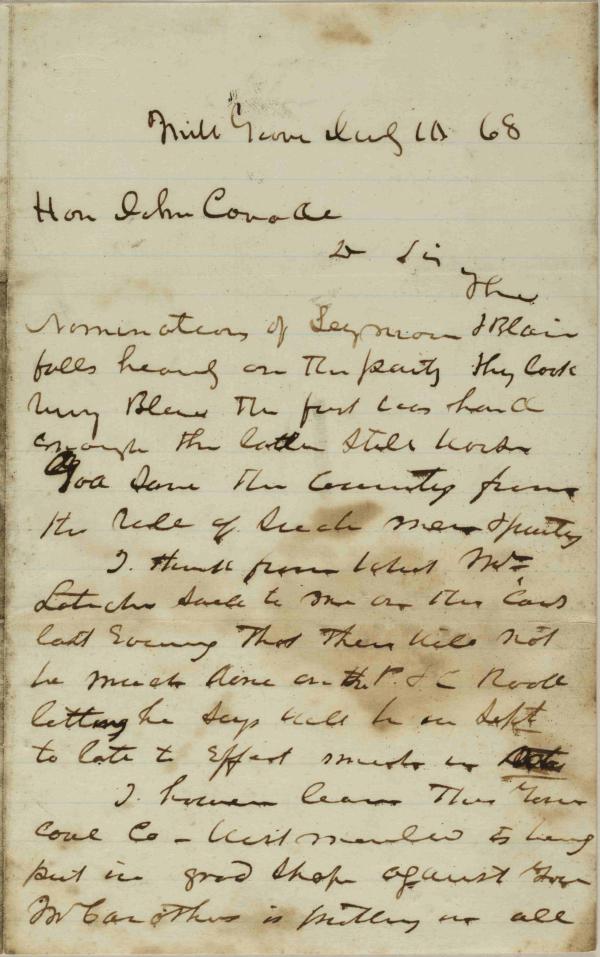 Mill Grove July 10 68
Hon John Covode
D Sir
The
Nomination of Seymour & Blair
falls heavy on the party they look
very Blue the first was hard
enough the latter still worse
God Save the Country from
the Rule of Such men & party
I think from What Mr
said to me on the Cars
last Evening That There will not
be much done on the P. & C Road
letting he Says will be in Sept
to late to Effect much in
I however learn That Your
coal Co - Westmorland is being
put in good Shape against You
Mr Carothers is putting in all